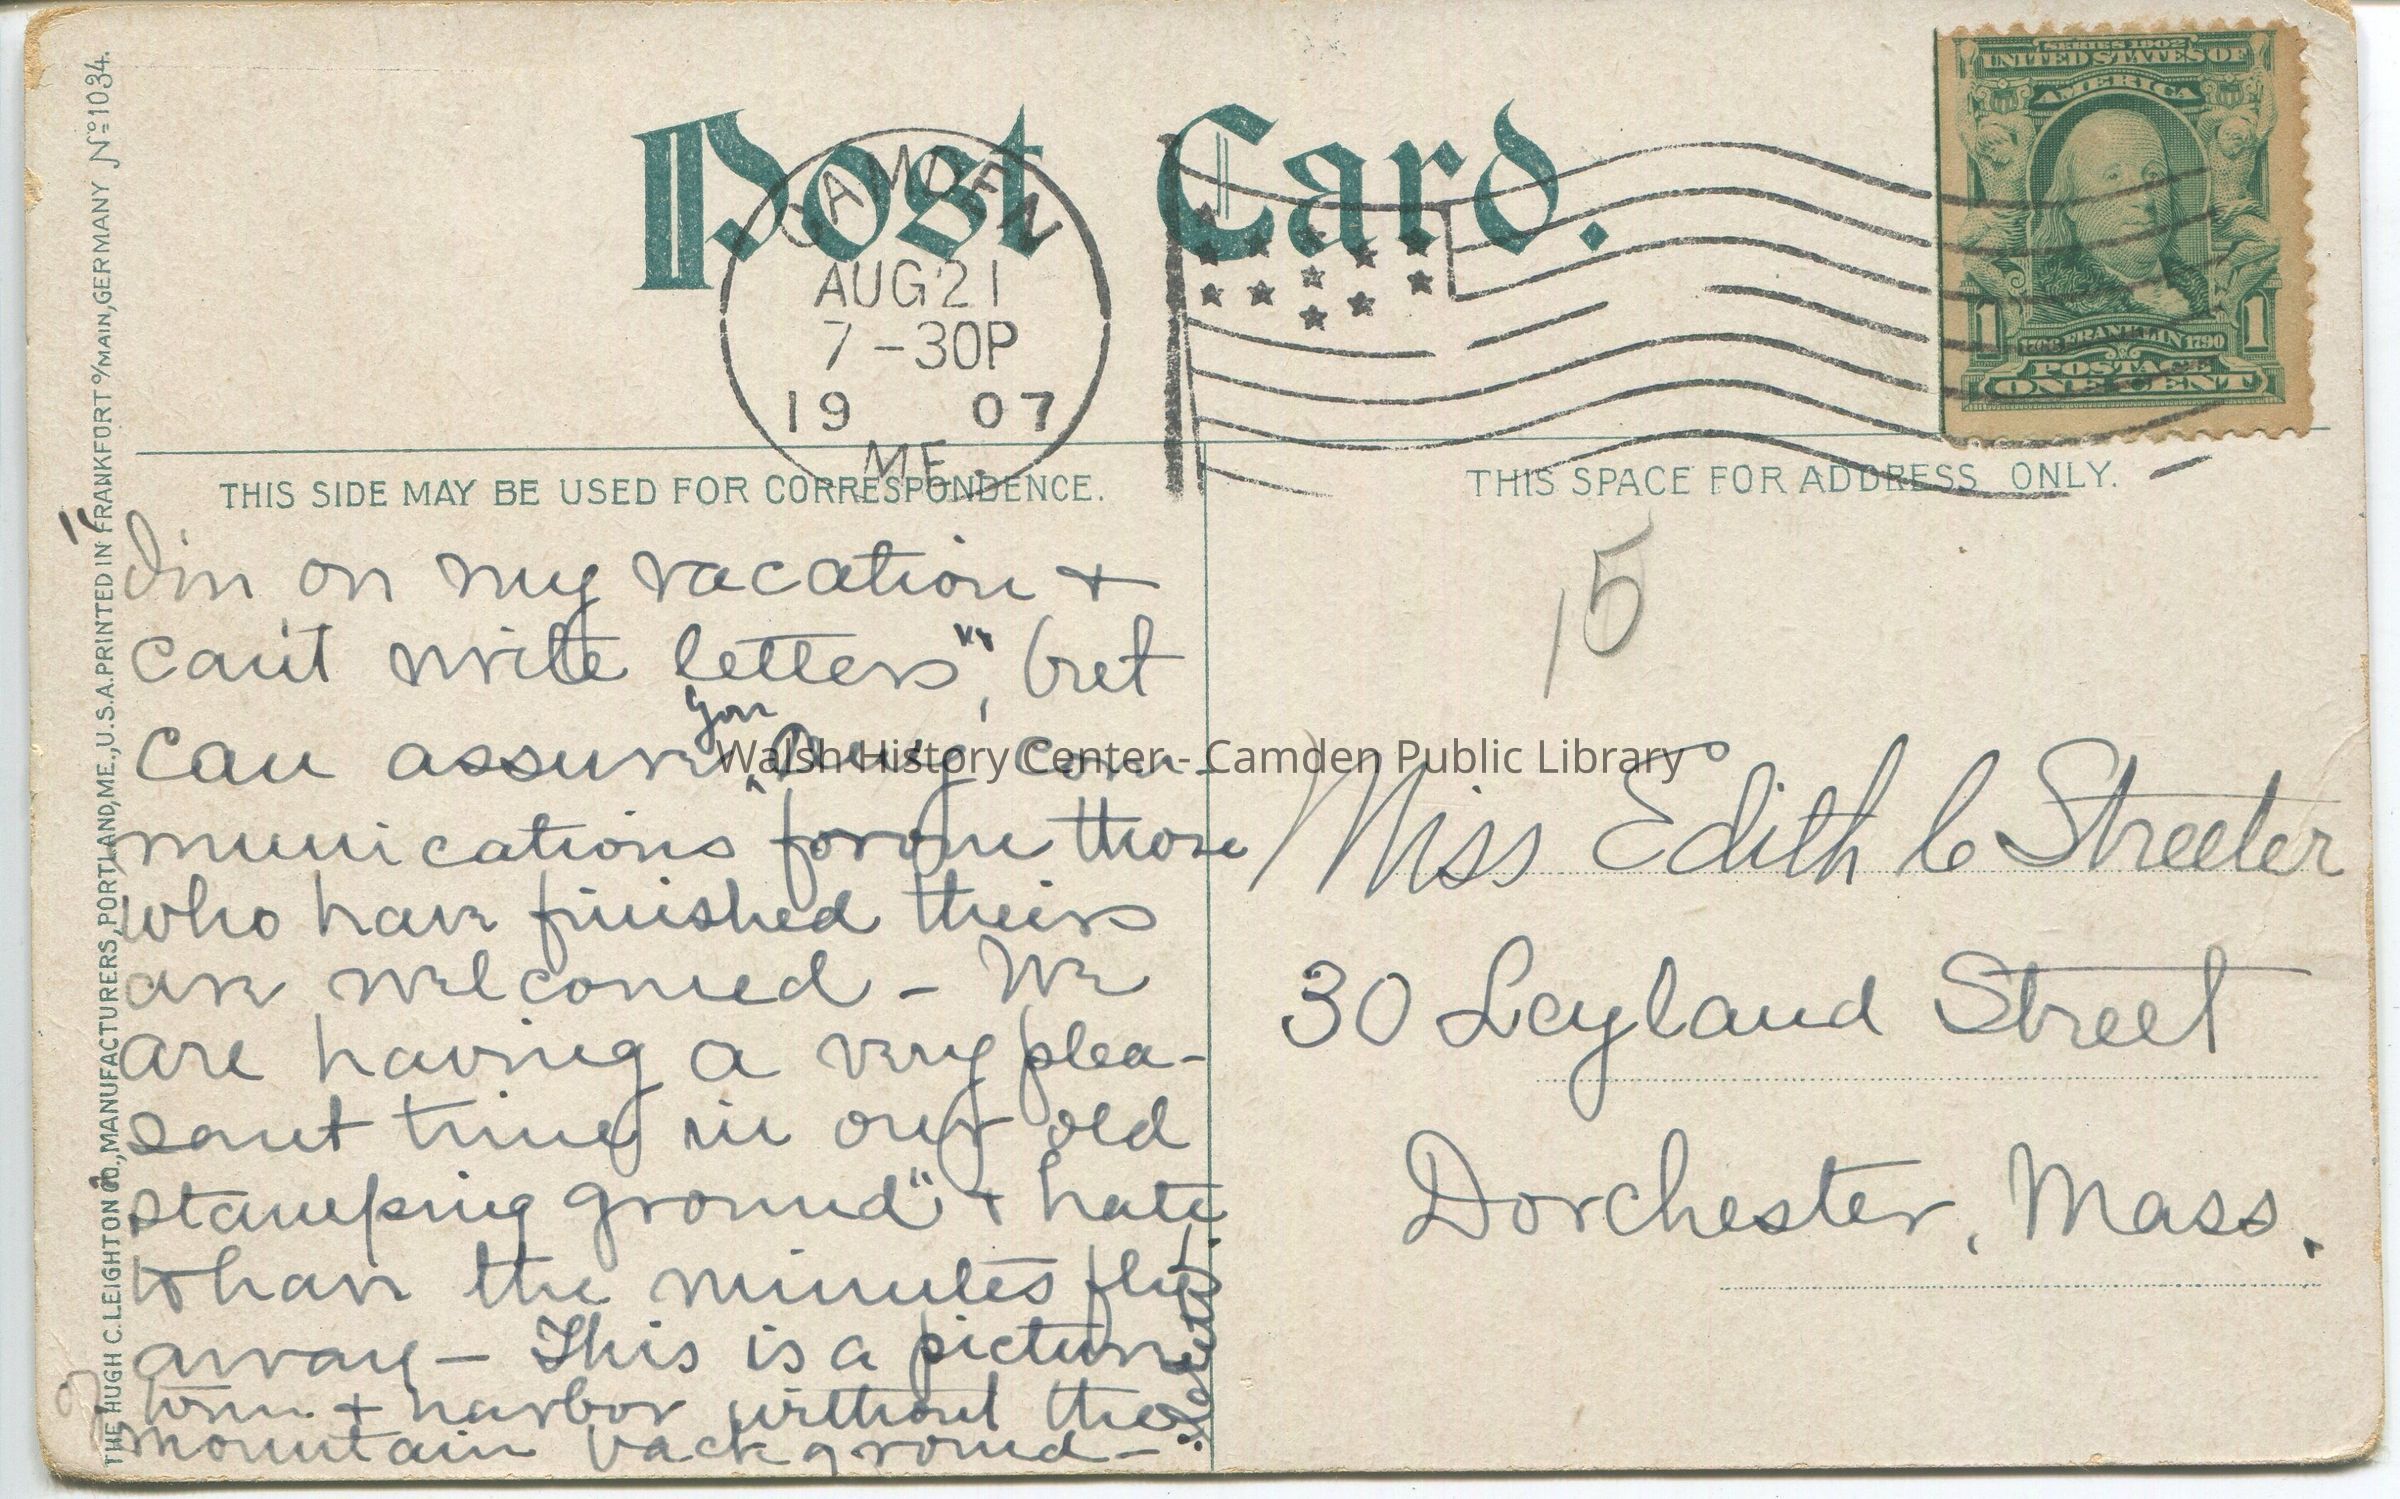 THE HUGH C. LEIGHTON CO., MANUFACTURERS, PORTLAND, ME., U.S.A. PRINTED IN FRANKFORT o/MAIN, GERMANY No 1034.
Post Card.
CAMDEN
AUG 21
7-30P
1907
ME.
SERIES 1902
UNITED STATES OF
AMERICA
1706 FRANKLIN 1790
1 1
POSTAGE
ONE CENT
THIS SIDE MAY BE USED FOR CORRESPONDENCE.
THIS SPACE FOR ADDRESS ONLY.
"I'm on my vacation +
can't write letters", but
can assure you any com-
munications from those
who have finished theirs
are welcomed - We
are having a very plea-
sant time in our "old
stamping ground" + hate
to have the minutes fly
away - This is a picture
of town + harbor without the
mountain background -
15
Miss Edith C Streeter
30 Leyland Street
Dorchester, Mass.
Walsh History Center - Camden Public Library